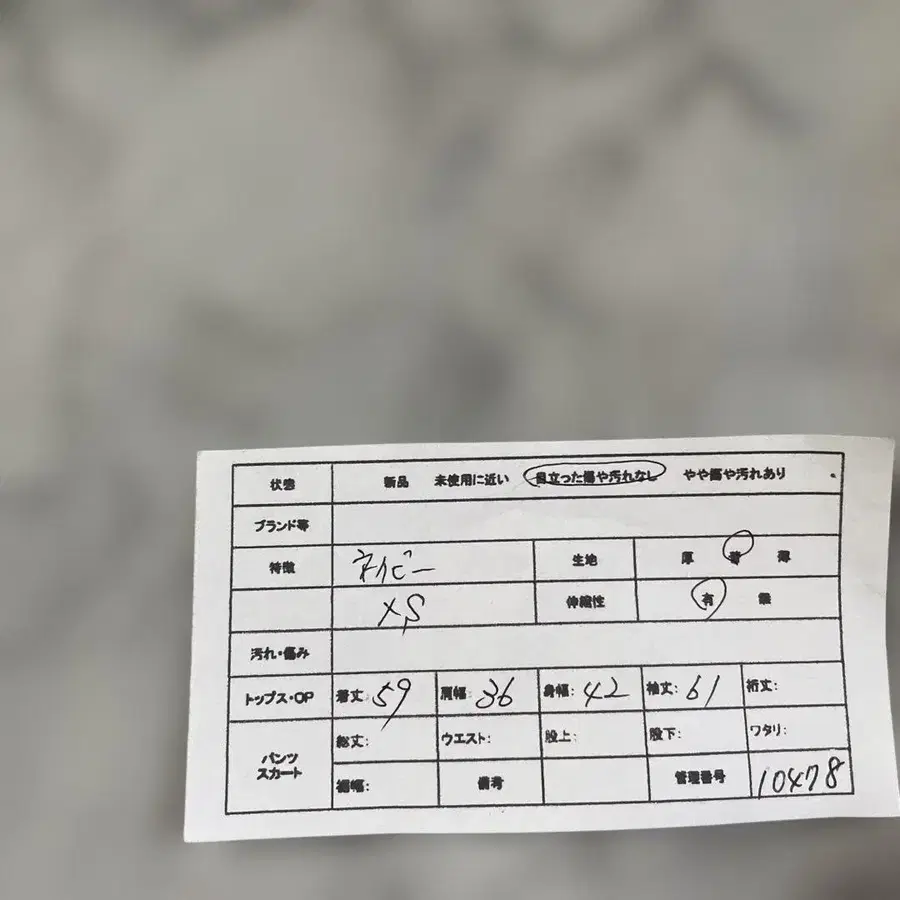 状態 新品 未使用に近い 目立った傷や汚れなし やや傷や汚れあり
ブランド等
特徴 ネイビー 生地 厚 普 薄
XS 伸縮性 有 無
汚れ・傷み
トップス・OP 着丈: 59 肩幅: 36 身幅: 42 袖丈: 61 裄丈:
パンツ スカート 総丈: ウエスト: 股上: 股下: ワタリ:
裾幅: 備考 管理番号 10478